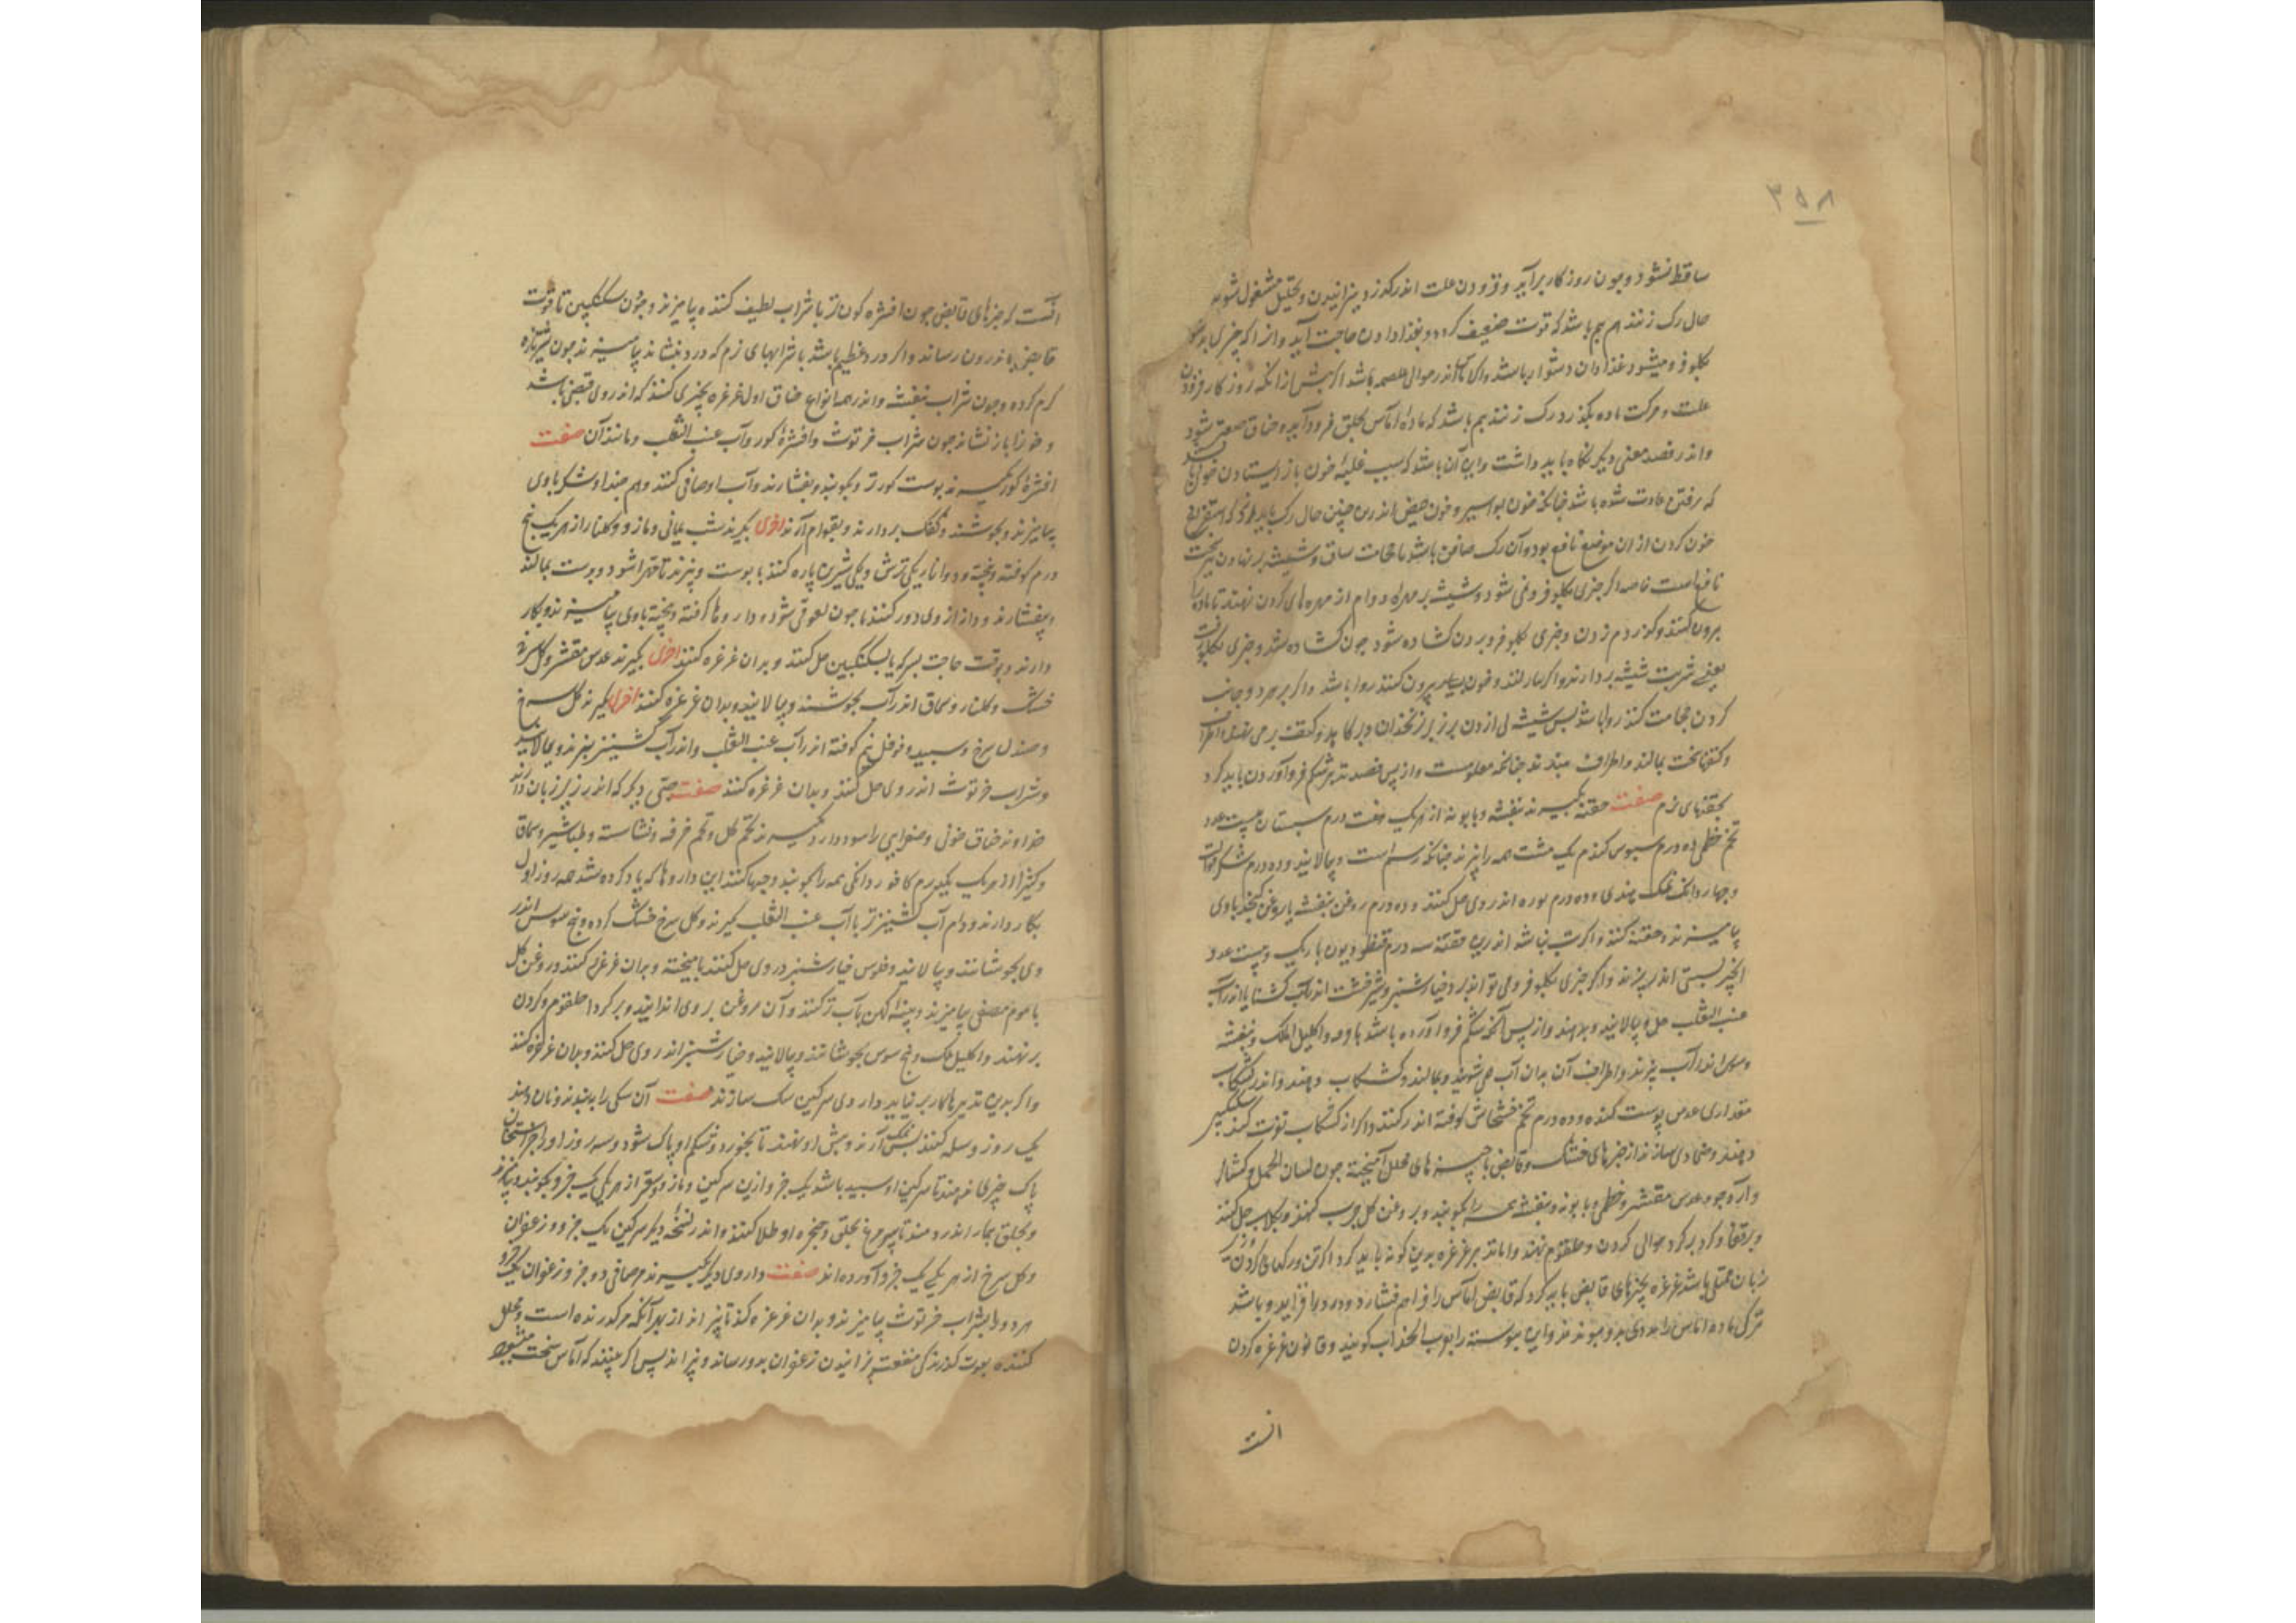 ۳۵۸
ساقط نشود و چون روزکار برآید و فزودن علت اندرکذرد بپزانیدن و تحلیل مشغول شوند
حال رک زنند هم بیم باشد که قوت ضعیف کردد و بغذا دادن حاجت آید و از آنکه چیزی
بکلو فرو میشود غذا دادن دشوار باشد و اکر آماس اندر حوالی باشد اکر پیش از آنکه روزکار فزودن
علت و حرکت ماده بکذرد رک زنند بیم باشد که ماده آماس بحلق فرود آید و خناق صعبتر شود
و اندر فصد معنی دیکر نکاه باید داشت و این آن باشد که سبب غلبه خون باز ایستادن خونی باشد
که رفتن عادت شده باشد چنانکه خون بواسیر و خون حیض اندرین چنین حال رک باید زد که استفراغ
خون کردن از ان موضع نافع بود و آن رک صافن باشد یا حجامت ساق و شیشه برنهادن
نافع است خاصه اکر چیزی بکلو فرو نمی شود و شیشه بر مهره دوام از مهره های کردن نهند تا ماده را
برون کند و کذر دم زدن و چیزی بکلو فرو بردن کشاده شود چون کشاده شد و چیزی بکلو رفت
یعنی شربت شیشه بردارند و اکر خون بسیار بیرون کنند روا باشد و اکر بر هر دو جانب
کردن حجامت کنند روا باشد پس شیشه
و کتفها سخت بمالند و اطراف ببندند چنانکه معلومست و از پس فصد تدبیر شکم فرو آوردن باید کرد
بحقنهای نرم صفت حقنه بکیرند بنفشه و بابونه از هر یک هفت درم سبستان بیست عدد
تخم خطمی ده درم سبوس کندم یک مشت همه را بپزند چنانکه رسم است و بپالایند و ده درم شکر
و چهار دانک نمک هندی و ده درم بوره اندر وی حل کنند و ده درم روغن بنفشه یا روغن کنجد با وی
بیامیزند و حقنه کنند و اکر تب نباشد اندرین حقنه سه درم قنطوریون باریک و بیست عدد
انجیر بستی اندر پزند و اکر چیزی بکلو فرو می تواند برد خیارشنبر و شیرخشت اندر آب کشنا یا اندر آب
عنب الثعلب حل و بپالایند و بدهند و از پس آنکه شکم فرو آورده باشد بابونه و اکلیل الملک و بنفشه
و سبوس اندر آب بپزند و اطراف آن بدان آب می شویند و بمالند و کشکاب دهند و اندر کشکاب
مقداری عدس پوست کنده و ده درم تخم خشخاش کوفته اندر کنند و اکر از کشکاب توت کنند سکنکبین
دهند و ضمادی سازند از چیزهای خشک و قابض با چیزهای محلل آمیخته چون لسان الحمل و کشنا
و آرد جو و عدس مقشر و خطمی و بابونه و بنفشه همه را بکوبند و بروغن کل چرب کنند و بکلاب حل کنند
و بر قفا و کرد بر کرد حوالی کردن و حلقوم نهند و اما تدبیر غرغره برین کونه باید کرد اکر تن و رکهای کردن و زیر
زبان ممتلی باشد غرغره بچیزهای قابض باید کرد که قابض آماس را فراهم فشارد و درد را فزاید و باشد
ترکی ماده آماس را بدوی بدو پیوندد و این پیوسته را یوجب الجذاب کویند و قانون غرغره کردن
آنست
آنست که چیزهای قابض چون افشره کوز تر با شراب لطیف کننده بیامیزند و چون سکنکبین تا قوت
قابض باندرون رساند و اکر درد عظیم باشد با شرابهای نرم که درد بنشاند بیامیزند چون شیر تازه
کرم کرده و چون شراب بنفشه و اندر همه انواع خناق اول غرغره بچیزی کنند که اندر وی قبض باشد
و خون را باز نشاند چون شراب خرتوث و افشرهٔ کوز و آب عنب الثعلب و مانند آن صفت
افشرهٔ کوز بکیرند پوست کوز تر و بکوبند و بفشارند و آب او صافی کنند و هم چند او شکر با وی
بیامیزند و بجوشند و کفک بردارند و بقوام آرند اخری بکیرند شب یمانی و مازو و کلنار از هر یک پنج
درم کوفته و پخته و دو انار یکی ترش و یکی شیرین پاره کنند با پوست و بپزند تا مهرا شود و پوست بمالند
و بفشارند و دانه از وی دور کنند تا چون لعوقی شود و داروها کوفته و پخته با وی بیامیزند و بکار
دارند و بوقت حاجت بسرکه یا بسکنکبین حل کنند و بدان غرغره کنند اخری بکیرند عدس مقشر و کل سرخ
خشک و کلنار و سماق اندر آب بجوشند و بپالایند و بدان غرغره کنند اخری بکیرند کل سرخ
و صندل سرخ و سپید و فوفل نیم کوفته اندر آب عنب الثعلب و اندر آب کشنیز بپزند و بپالایند
و شراب خرتوث اندر وی حل کنند و بدان غرغره کنند صفت حبی دیکر که اندر زیر زبان دارند
خداوند خناق خونی و صفرایی را سود دارد بکیرند تخم کل و تخم خرفه و نشاسته و طباشیر و سماق
و کثیرا از هر یک یکدرم کافور دانکی همه را بکوبند و حبها کنند این داروها که یاد کرده شد همه روز اول
بکار دارند و دوم آب کشنیز تر با آب عنب الثعلب کیرند و کل سرخ خشک کرده و بیخ سوس اندر
وی بجوشانند و بپالایند و فلوس خیارشنبر در وی حل کنند نا میخته و بدان غرغره کنند و روغن کل
با موم مصفی بیامیزند و پنبه کهن بآب تر کنند و آن روغن بر وی اندایند و بر کرد حلقوم و کردن
بر نهند و اکلیل الملک و بیخ سوس بجوشانند و بپالایند و خیارشنبر اندر وی حل کنند و بدان غرغره کنند
و اکر بدین تدبیرها کار بر نیاید داروی سرکین سک سازند صفت آن سکی را ببندند و نان دهند
یک روز وسله کنند پس استخوان آرند و پیش او نهند تا بخورد و شکم او پاک شود و سه روز او را جز استخوان
پاک چیزی ندهند تا سرکین او سپید باشد یک جز و ازین سرکین و مازو و سعتر از هر یکی یک جزو بکوبند و بپزند
و بحلق بیمار اندر دمند تا بپر مرغ بحلق و حنجره او طلا کنند و اندر نسخهٔ دیکر سرکین یک جزو و زعفران
و کل سرخ از هر یکی یک جزو آورده اند صفت داروی دیکر بکیرند مر صافی دو جزو زعفران یک جزو
هر دو را بشراب خرتوث بیامیزند و بدان غرغره کنند تا بپزاند از بهر آنکه مر کدازنده است و محلل
کننده بقوت کذرندکی منفعت بپزانیدن زعفران بدو رساند و بپزاند پس اکر ببینند که آماس سخت میشود